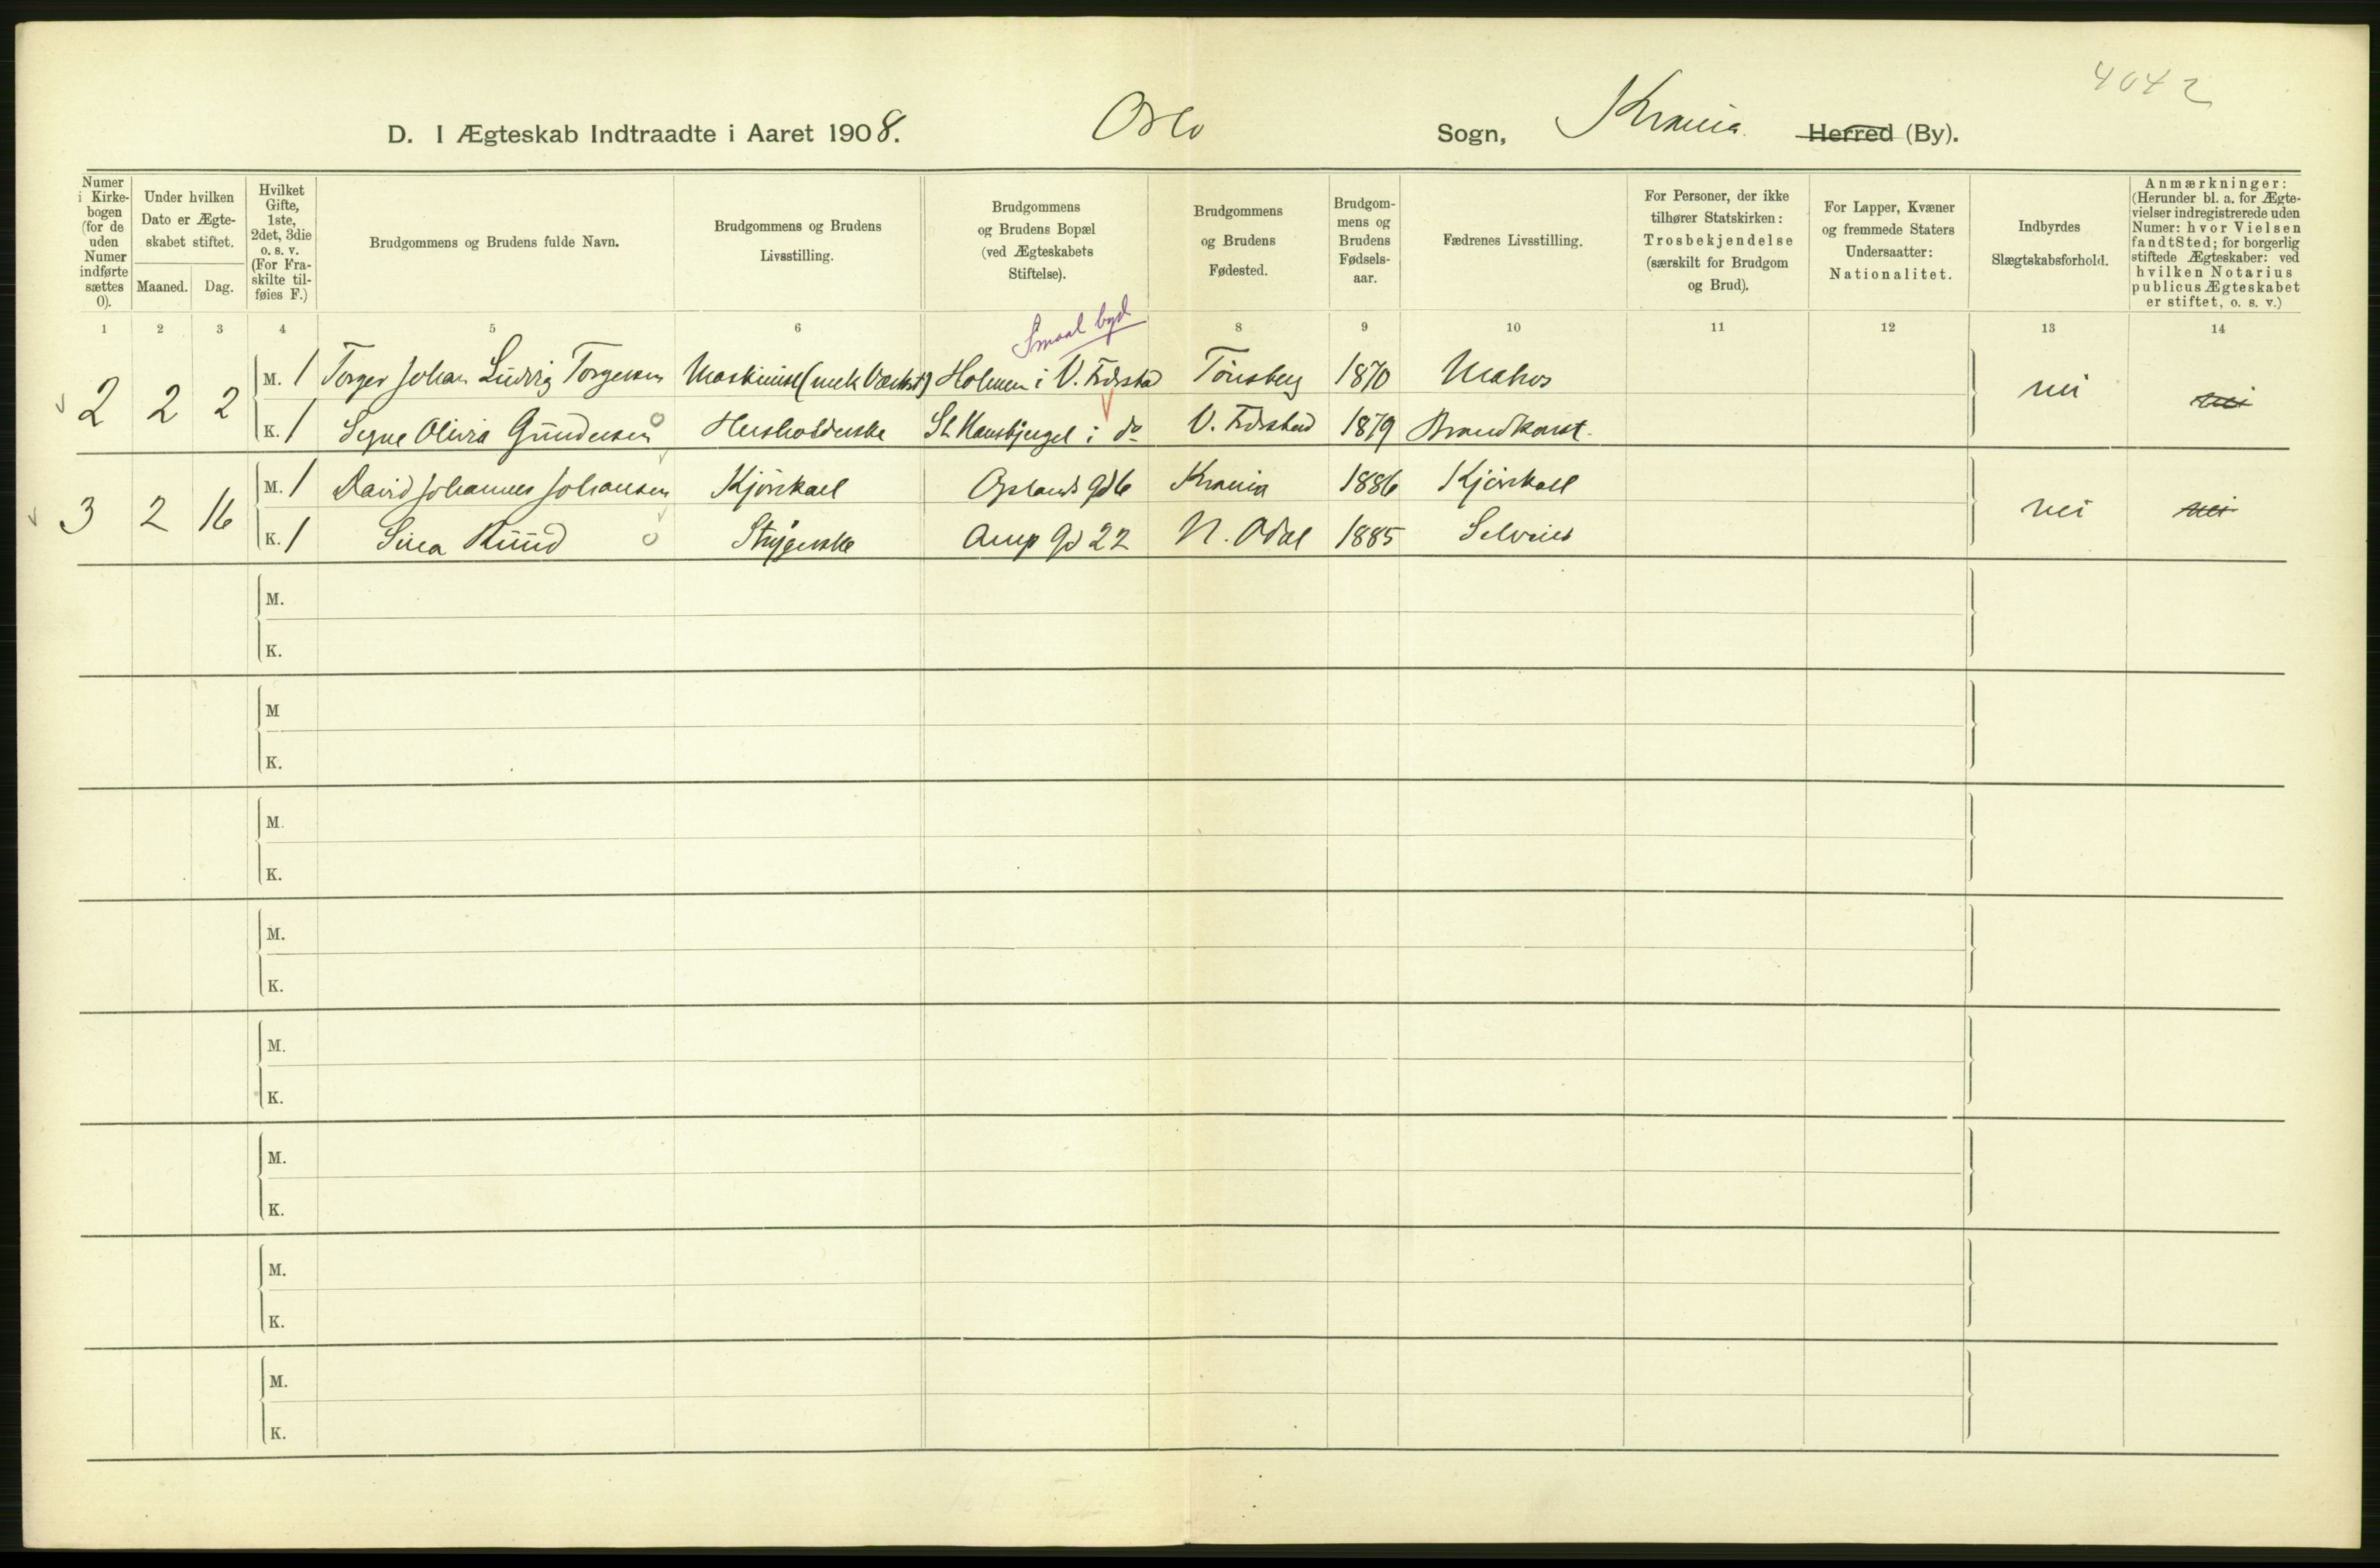 4042
D. I Ægteskab Indtraadte i Aaret 1908. Oslo Sogn, Krania Herred (By).
Numer i Kirke-bogen (for de uden Numer indførte sættes 0).
Under hvilken Dato er Ægte-skabet stiftet.
Maaned. Dag.
Hvilket Gifte, 1ste, 2det, 3die o. s. v. (For Fra-skilte til-føies F.)
Brudgommens og Brudens fulde Navn.
Brudgommens og Brudens Livsstilling.
Brudgommens og Brudens Bopæl (ved Ægteskabets Stiftelse).
Brudgommens og Brudens Fødested.
Brudgom-mens og Brudens Fødsels-aar.
Fædrenes Livsstilling.
For Personer, der ikke tilhører Statskirken: Trosbekjendelse (særskilt for Brudgom og Brud).
For Lapper, Kvæner og fremmede Staters Undersaatter: Nationalitet.
Indbyrdes Slægtskabsforhold.
Anmærkninger: (Herunder bl. a. for Ægte-vielser indregistrerede uden Numer: hvor Vielsen fandt Sted; for borgerlig stiftede Ægteskaber: ved hvilken Notarius publicus Ægteskabet er stiftet, o. s. v.)
1 2 3 4 5 6 8 9 10 11 12 13 14
Smaal byd
2 2 2 M. 1 Torger Johan Ludvig Torgersen Maskinist (mek Værkst) Holmen i V. Fredrstad Tönsberg 1870 Matros nei nei
K. 1 Signe Olivia Gundersen Husholderske St. Hansbjerget i do V. Fredrstad 1879 Brandkonst.
3 2 16 M. 1 David Johannes Johansen Kjörekarl Oplands Gd 6 Krania 1886 Kjörekarl nei nei
K. 1 Sina Ruud Strygerske Arup Gd 22 N. Odal 1885 Selveier
M.
K.
M
K.
M.
K.
M.
K.
M.
K.
M.
K.
M.
K.
M.
K.